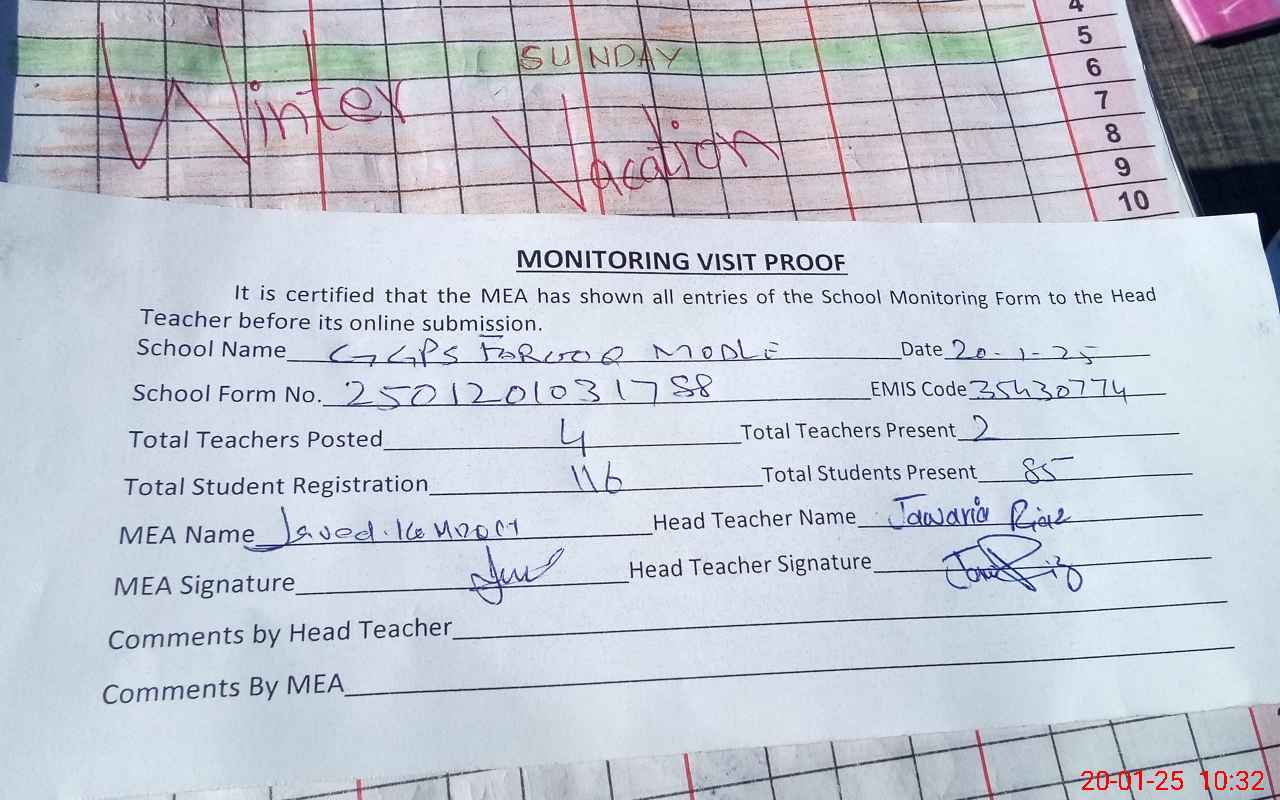 4
5
SUNDAY
6
Winter
7
Vacation
8
9
10
MONITORING VISIT PROOF
It is certified that the MEA has shown all entries of the School Monitoring Form to the Head
Teacher before its online submission.
School Name GGPS FAROOQ MODLE Date 20-1-25
School Form No. 2501201031788 EMIS Code 35430774
Total Teachers Posted 4 Total Teachers Present 2
Total Student Registration 116 Total Students Present 85
MEA Name Javed Head Teacher Name Jawaria Riaz
MEA Signature Head Teacher Signature
Comments by Head Teacher
Comments By MEA
20-01-25 10:32